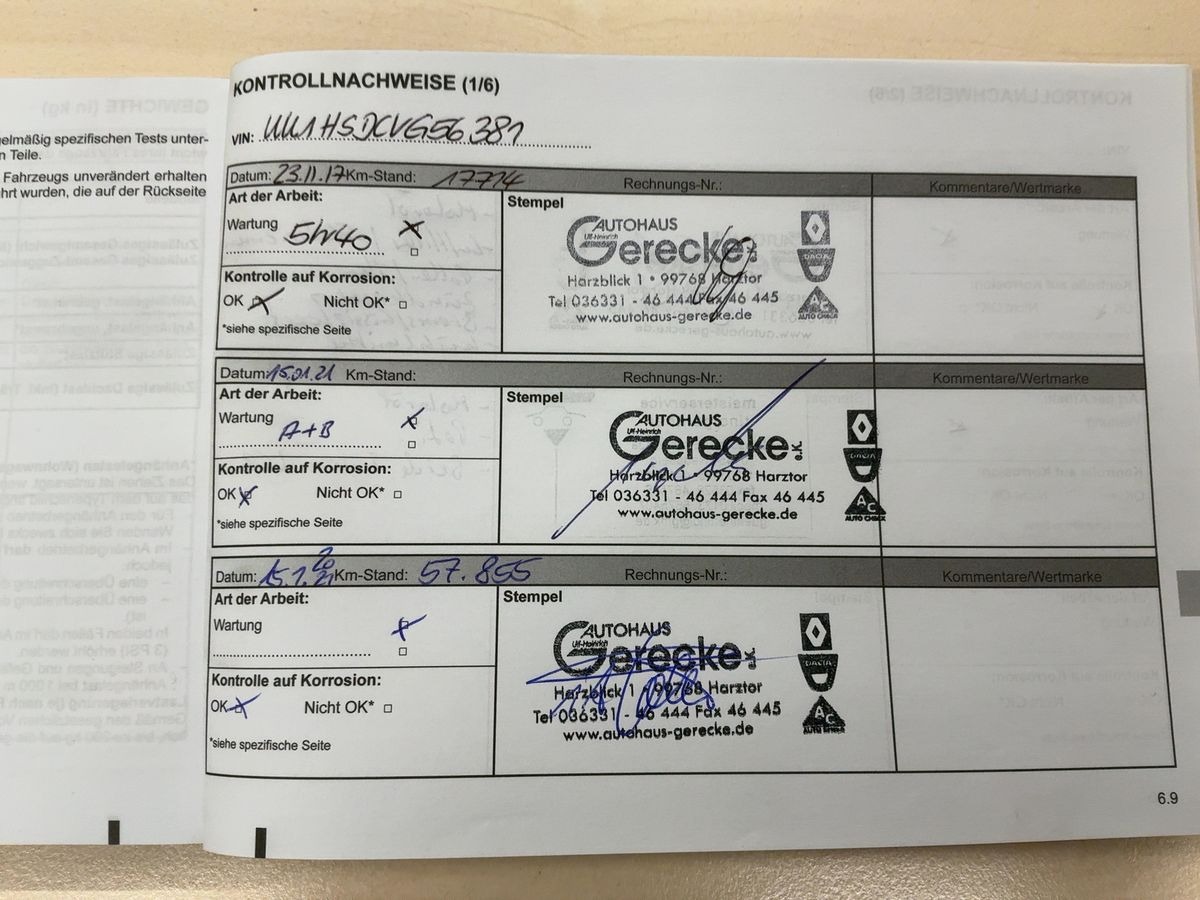 elmäßig spezifischen Tests unter-
n Teile.
Fahrzeugs unverändert erhalten
hrt wurden, die auf der Rückseite
GEWICHTE (in kg)
KONTROLLNACHWEISE (1/6)
VIN: UU1HSDCVG56381
Datum: 23.11.17 Km-Stand: 17714 Rechnungs-Nr.: Kommentare/Wertmarke
Art der Arbeit:
Stempel
Wartung
AUTOHAUS
Ulf-Heinrich
Gerecke
DACIA
Harzblick 1 • 99768 Harztor
Tel 036331 - 46 444 Fax 46 445
www.autohaus-gerecke.de
AC
AUTO CHECK
Kontrolle auf Korrosion:
OK Nicht OK*
*siehe spezifische Seite
Datum: 15.01.21 Km-Stand: Rechnungs-Nr.: Kommentare/Wertmarke
Art der Arbeit:
Stempel
Wartung
A+B
AUTOHAUS
Ulf-Heinrich
Gerecke e.K.
DACIA
Harzblick 1 • 99768 Harztor
Tel 036331 - 46 444 Fax 46 445
www.autohaus-gerecke.de
AC
AUTO CHECK
Kontrolle auf Korrosion:
OK Nicht OK*
*siehe spezifische Seite
Datum: 15.1. Km-Stand: 57.855 Rechnungs-Nr.: Kommentare/Wertmarke
Art der Arbeit:
Stempel
Wartung
AUTOHAUS
Ulf-Heinrich
Gerecke e.K.
DACIA
Harzblick 1 • 99768 Harztor
Tel 036331 - 46 444 Fax 46 445
www.autohaus-gerecke.de
AC
AUTO CHECK
Kontrolle auf Korrosion:
OK Nicht OK*
*siehe spezifische Seite
6.9